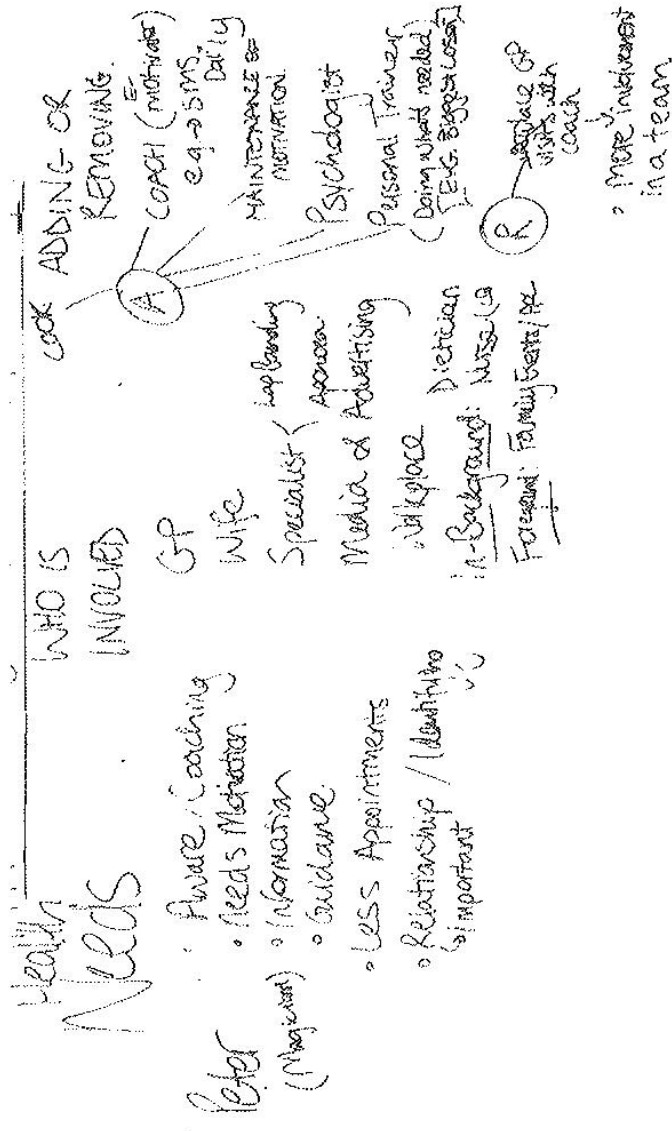 Health
Needs
Peter
(Magician)
Aware / Coaching
• Needs Motivation
• Information
• Guidance
• Less Appointments
• Relationship / Identifying
is important
WHO IS
INVOLVED
GP
Wife
Specialist
Lap Banding
Media & Advertising
• Workplace
in-Background: Dietician
Foreground: Family
ADDING OR
REMOVING.
A
COACH (motivator)
eg → SMS,
Daily
MAINTENANCE
MOTIVATION.
Psychologist
Personal Trainer
(Doing what's needed)
[E.G. Biggest Loser]
R
replace GP
visits with
coach
• More involvement
in a team.